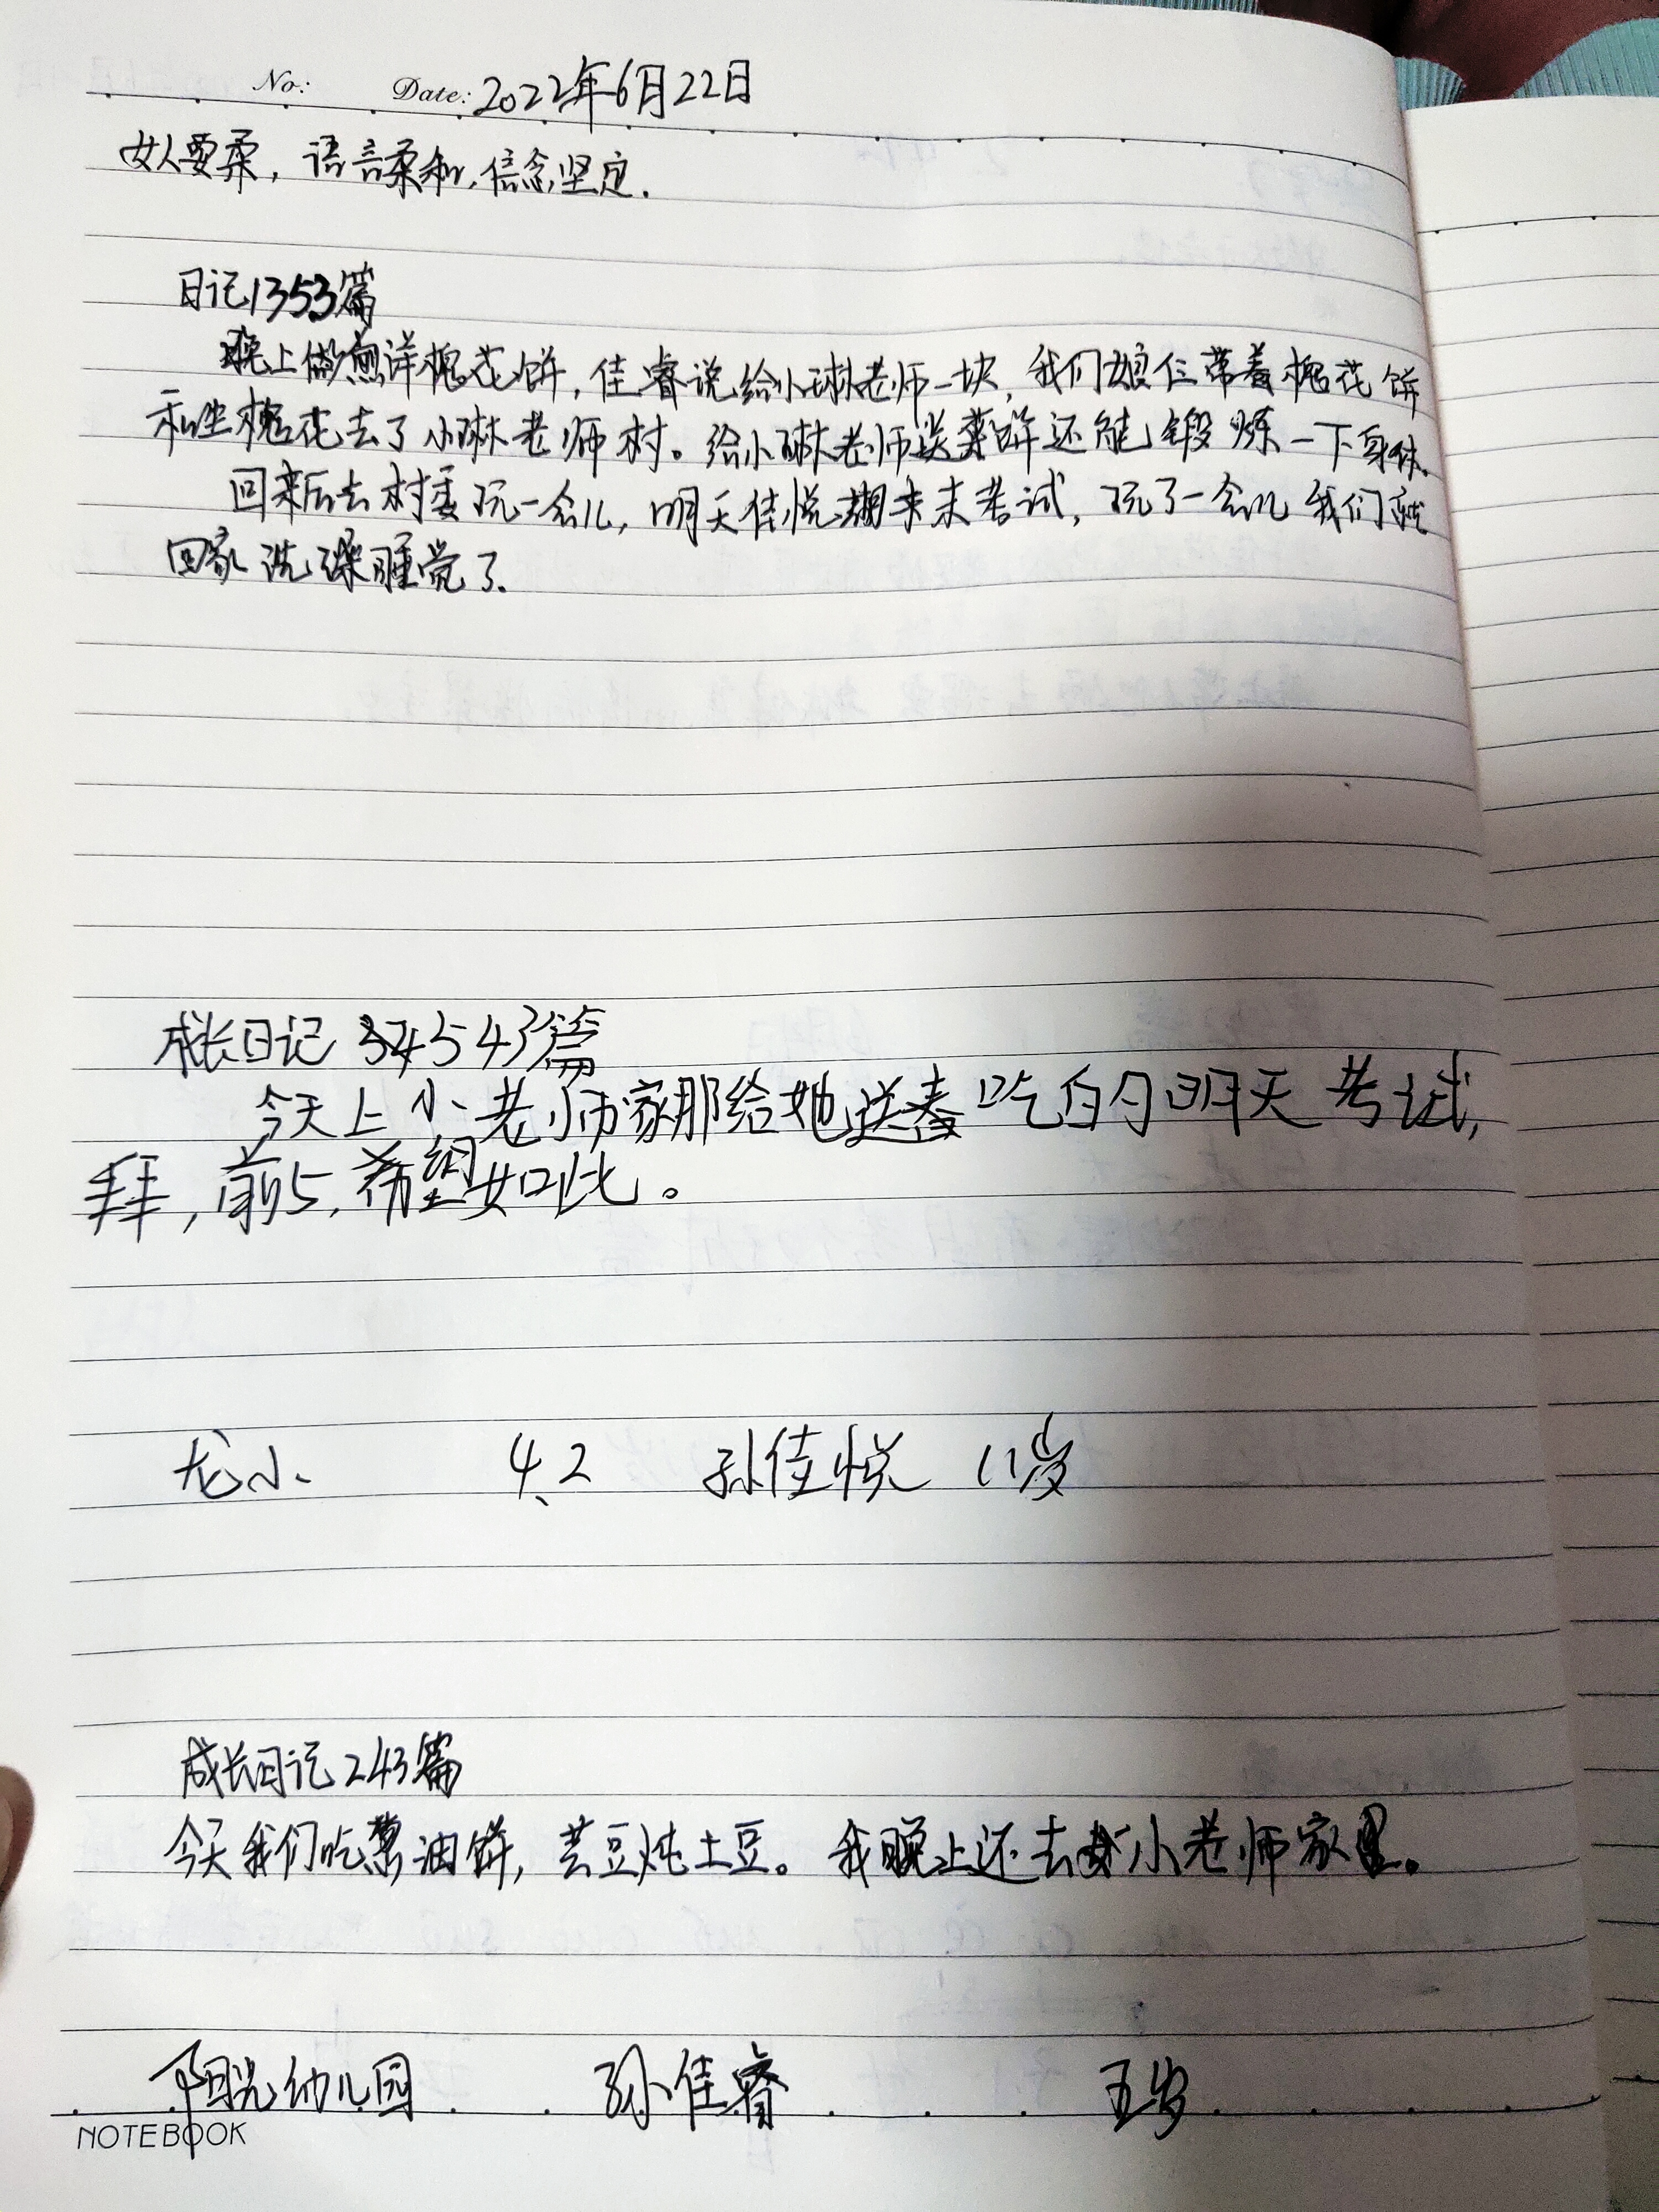 No: Date: 2022年6月22日
女人要柔，语言柔和，信念坚定.
日记1353篇
晚上做煎洋槐花饼，佳睿说给小琳老师一块，我们娘仨带着槐花饼
和生槐花去了小琳老师村。给小琳老师送菜饼还能锻炼一下身体。
回来后去村委玩一会儿，明天佳悦期末考试，玩了一会儿我们就
回家洗澡睡觉了.
成长日记 543篇
今天上小老师家那给她送 吃白勺明天考试,
拜，前5，希望如此。
龙小 4.2 孙佳悦 11岁
成长日记243篇
今天我们吃葱油饼，芸豆炖土豆。我晚上还去 小老师家里。
阳光幼儿园 孙佳睿 五岁
NOTEBOOK